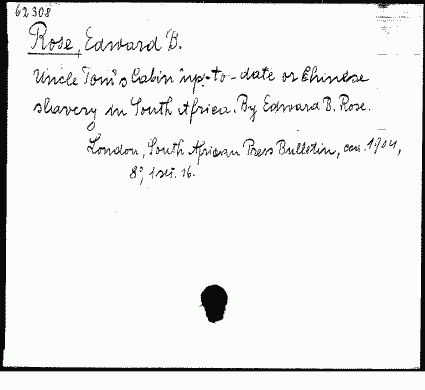 62308
Rose, Edward B.
Uncle Tom's Cabin "up-to-date or Chinese
slavery in South Africa. By Edward B. Rose.
London, South African Press Bulletin, ca. 1904,
8°, 16.